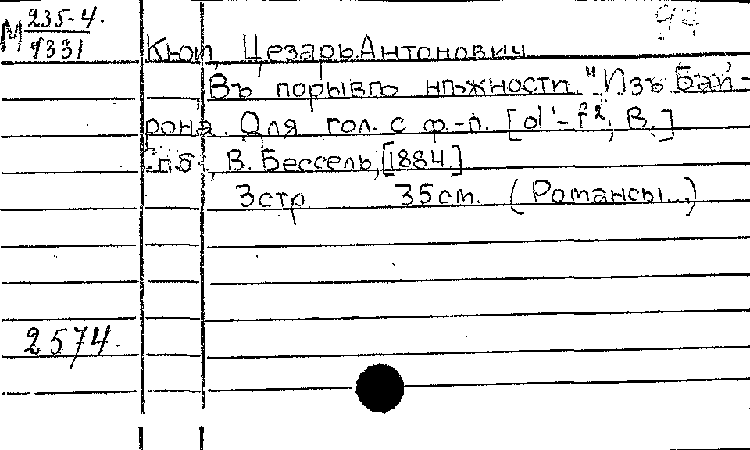 М 235-4.
1331
Кюи, Цезарь Антонович
Въ порывѣ нѣжности "Изъ Бай-
рона. Для гол. с ф.-п. [d¹-f², B.]
Спб., В. Бессель, [1884]
3 стр. 35 cm. (Романсы...)
2574.